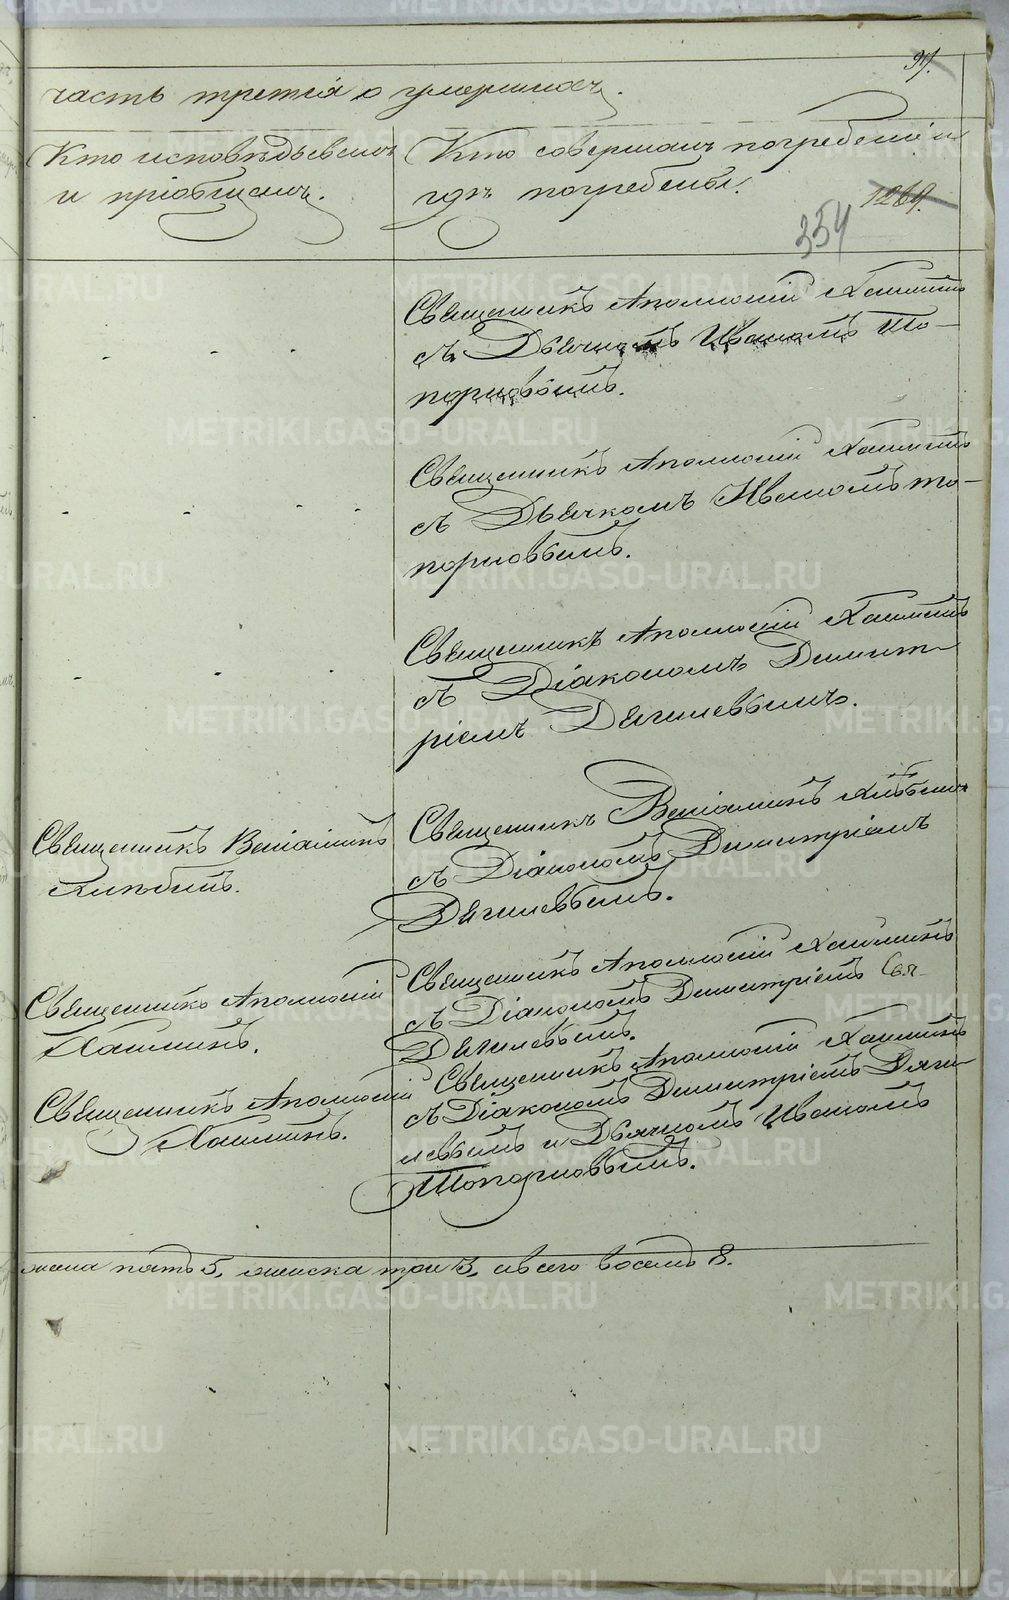 97.
часть третія о умершихъ.
Кто исповѣдывалъ
и пріобщалъ.
Кто совершалъ погребеніе и
гдѣ погребены.
1269.
354
Священникъ Аполлоній Хлапинъ
съ Дьячкомъ Иваномъ То-
порновымъ.
Священникъ Аполлоній
съ Дьячкомъ Иваномъ то-
порновымъ.
Священникъ Аполлоній
съ Діакономъ Димит-
ріемъ Дягилевымъ.
Священникъ Веніаминъ
Хлѣбинъ.
Священникъ Веніаминъ Хлѣбинъ
съ Діакономъ Димитріемъ
Дягилевымъ.
Священникъ Аполлоній
Священникъ Аполлоній
съ Діакономъ Димитріемъ
Дягилевымъ.
Священникъ Аполлоній
Священникъ Аполлоній
съ Діакономъ Димитріемъ Дяги-
левымъ и Дьячкомъ Иваномъ
Топорновымъ.
пять 5, женска три 3, а всего восемь 8.
METRIKI.GASO-URAL.RU